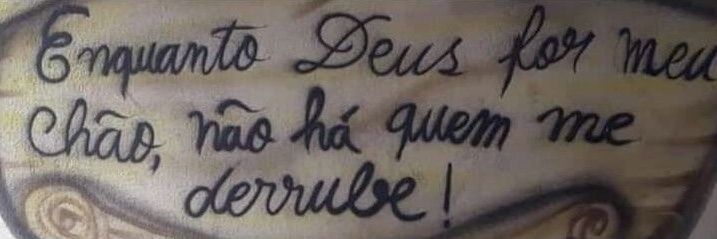 Enquanto Deus for meu
chão, não há quem me
derrube!